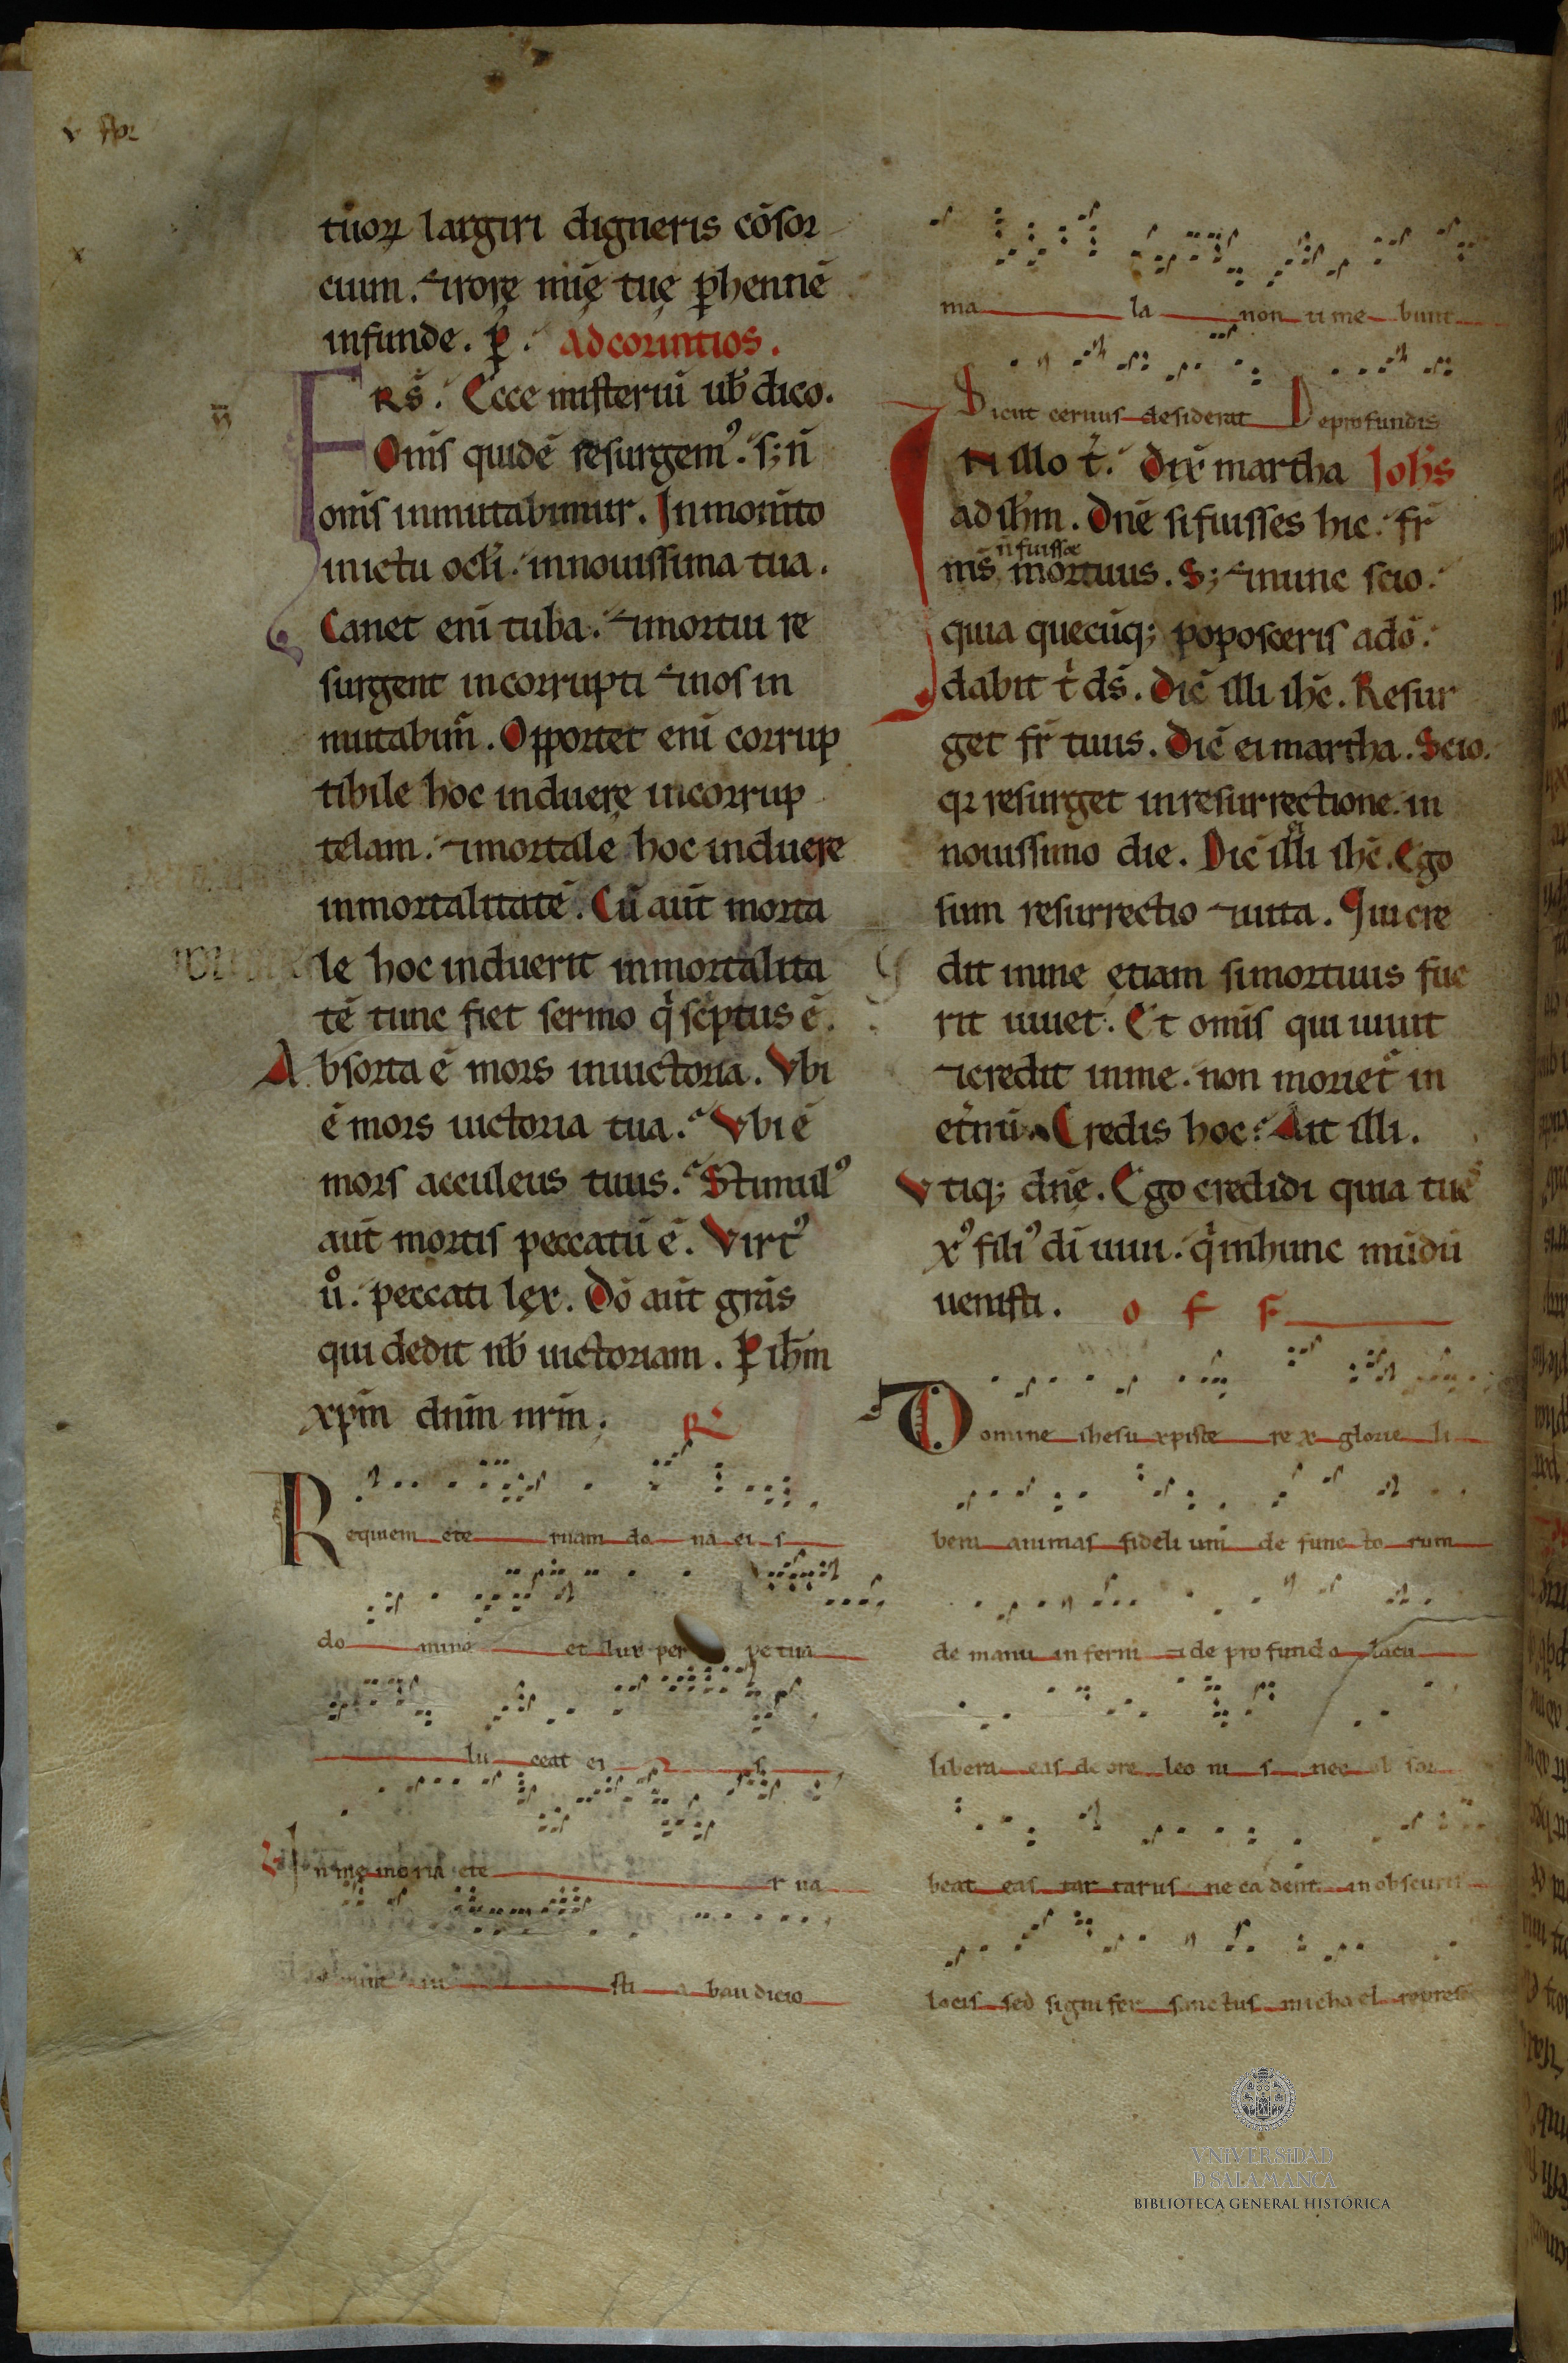 tuoꝝ largiri digneris cōsor
cium. ⁊ rore mīe tue ꝑhennē
infunde. ꝑ. ad corintios.
FRS̄. Ecce misteriū ub̄ dico.
Om̄s quidē resurgemꝰ. s; n̄
om̄s inmutabimur. In momt̄o
in ictu ocl̄i. in nouissima tua.
Canet eni tuba. ⁊ mortui re
surgent incorrupti ⁊ nos in
mutabim̄. Opportet eni corrup
tibile hoc induere incorrup
telam. ⁊ mortale hoc induere
inmortalitatē. Cū aut̄ morta
le hoc induerit inmortalita
tē tunc fiet sermo q̇ scrptus ē.
Absorta ē mors in uictoria. Vbi
ē mors uictoria tua. Vbi ē
mors acculeus tuus. Stimulꝰ
aut̄ mortis peccatū ē. Virtꝰ
u̇. peccati lex. Dō aut̄ grās
qui dedit nb̄ uictoriam. ꝑ ihm̄
xpm̄ dnm̄ nrm̄. R
Requiem ete rnam do na ei s
do mine et lux per petua
lu ceat ei s
V In memoria ete r na
sti ab audicio
ma la non ti me bunt
Sicut ceruus desiderat De profundis
IN illo t̄. Dix̄ martha Ioh̄s
ad ihm̄. Dnē si fuisses hic. fr̄
n̄ fuisset
ms̄ mortuus. S; ⁊ nunc scio.
quia quecūq; poposceris a dō.
dabit t̄ ds̄. Dic̄ illi ihc̄. Resur
get fr̄ tuus. Dic̄ ei martha. Scio.
qꝛ resurget in resurrectione. in
nouissimo die. Dic̄ illi ihc̄. Ego
sum resurrectio ⁊ uita. Qui cre
dit in me etiam si mortuus fue
rit uiuet. Et om̄s qui uiuit
⁊ credit in me. non moriet̄ in
et̄nū. Credis hoc. Ait illi.
Vtiq; dn̄e. Ego credidi quia tu es
xꝰ filiꝰ dī uiui. q̇ in hunc mūdū
uenisti. o f f
Domine ihesu xpiste re x glorie li
bera animas fideli um de func to rum
de manu inferni ⁊ de pro fundo lacu
libera eas de ore leo ni s nec ob sor
beat eas tar tarus ne ca dent in obscuris
locis sed signi fer sanctus micha el repres
VNIVERSIDAD
D SALAMANCA
BIBLIOTECA GENERAL HISTÓRICA